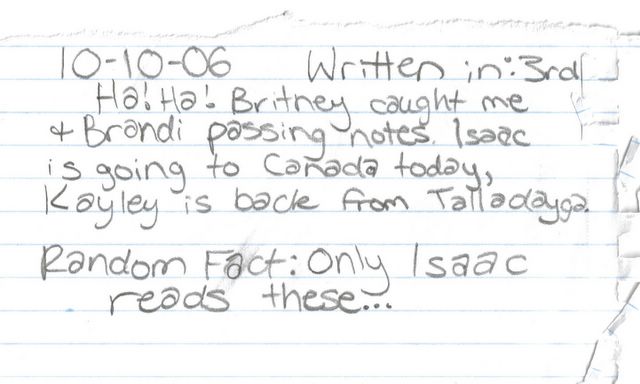 10-10-06 Written in: 3rd
Ha! Ha! Britney caught me
+ Brandi passing notes. Isaac
is going to Canada today,
Kayley is back from Talladayga.
Random Fact: Only Isaac
reads these...